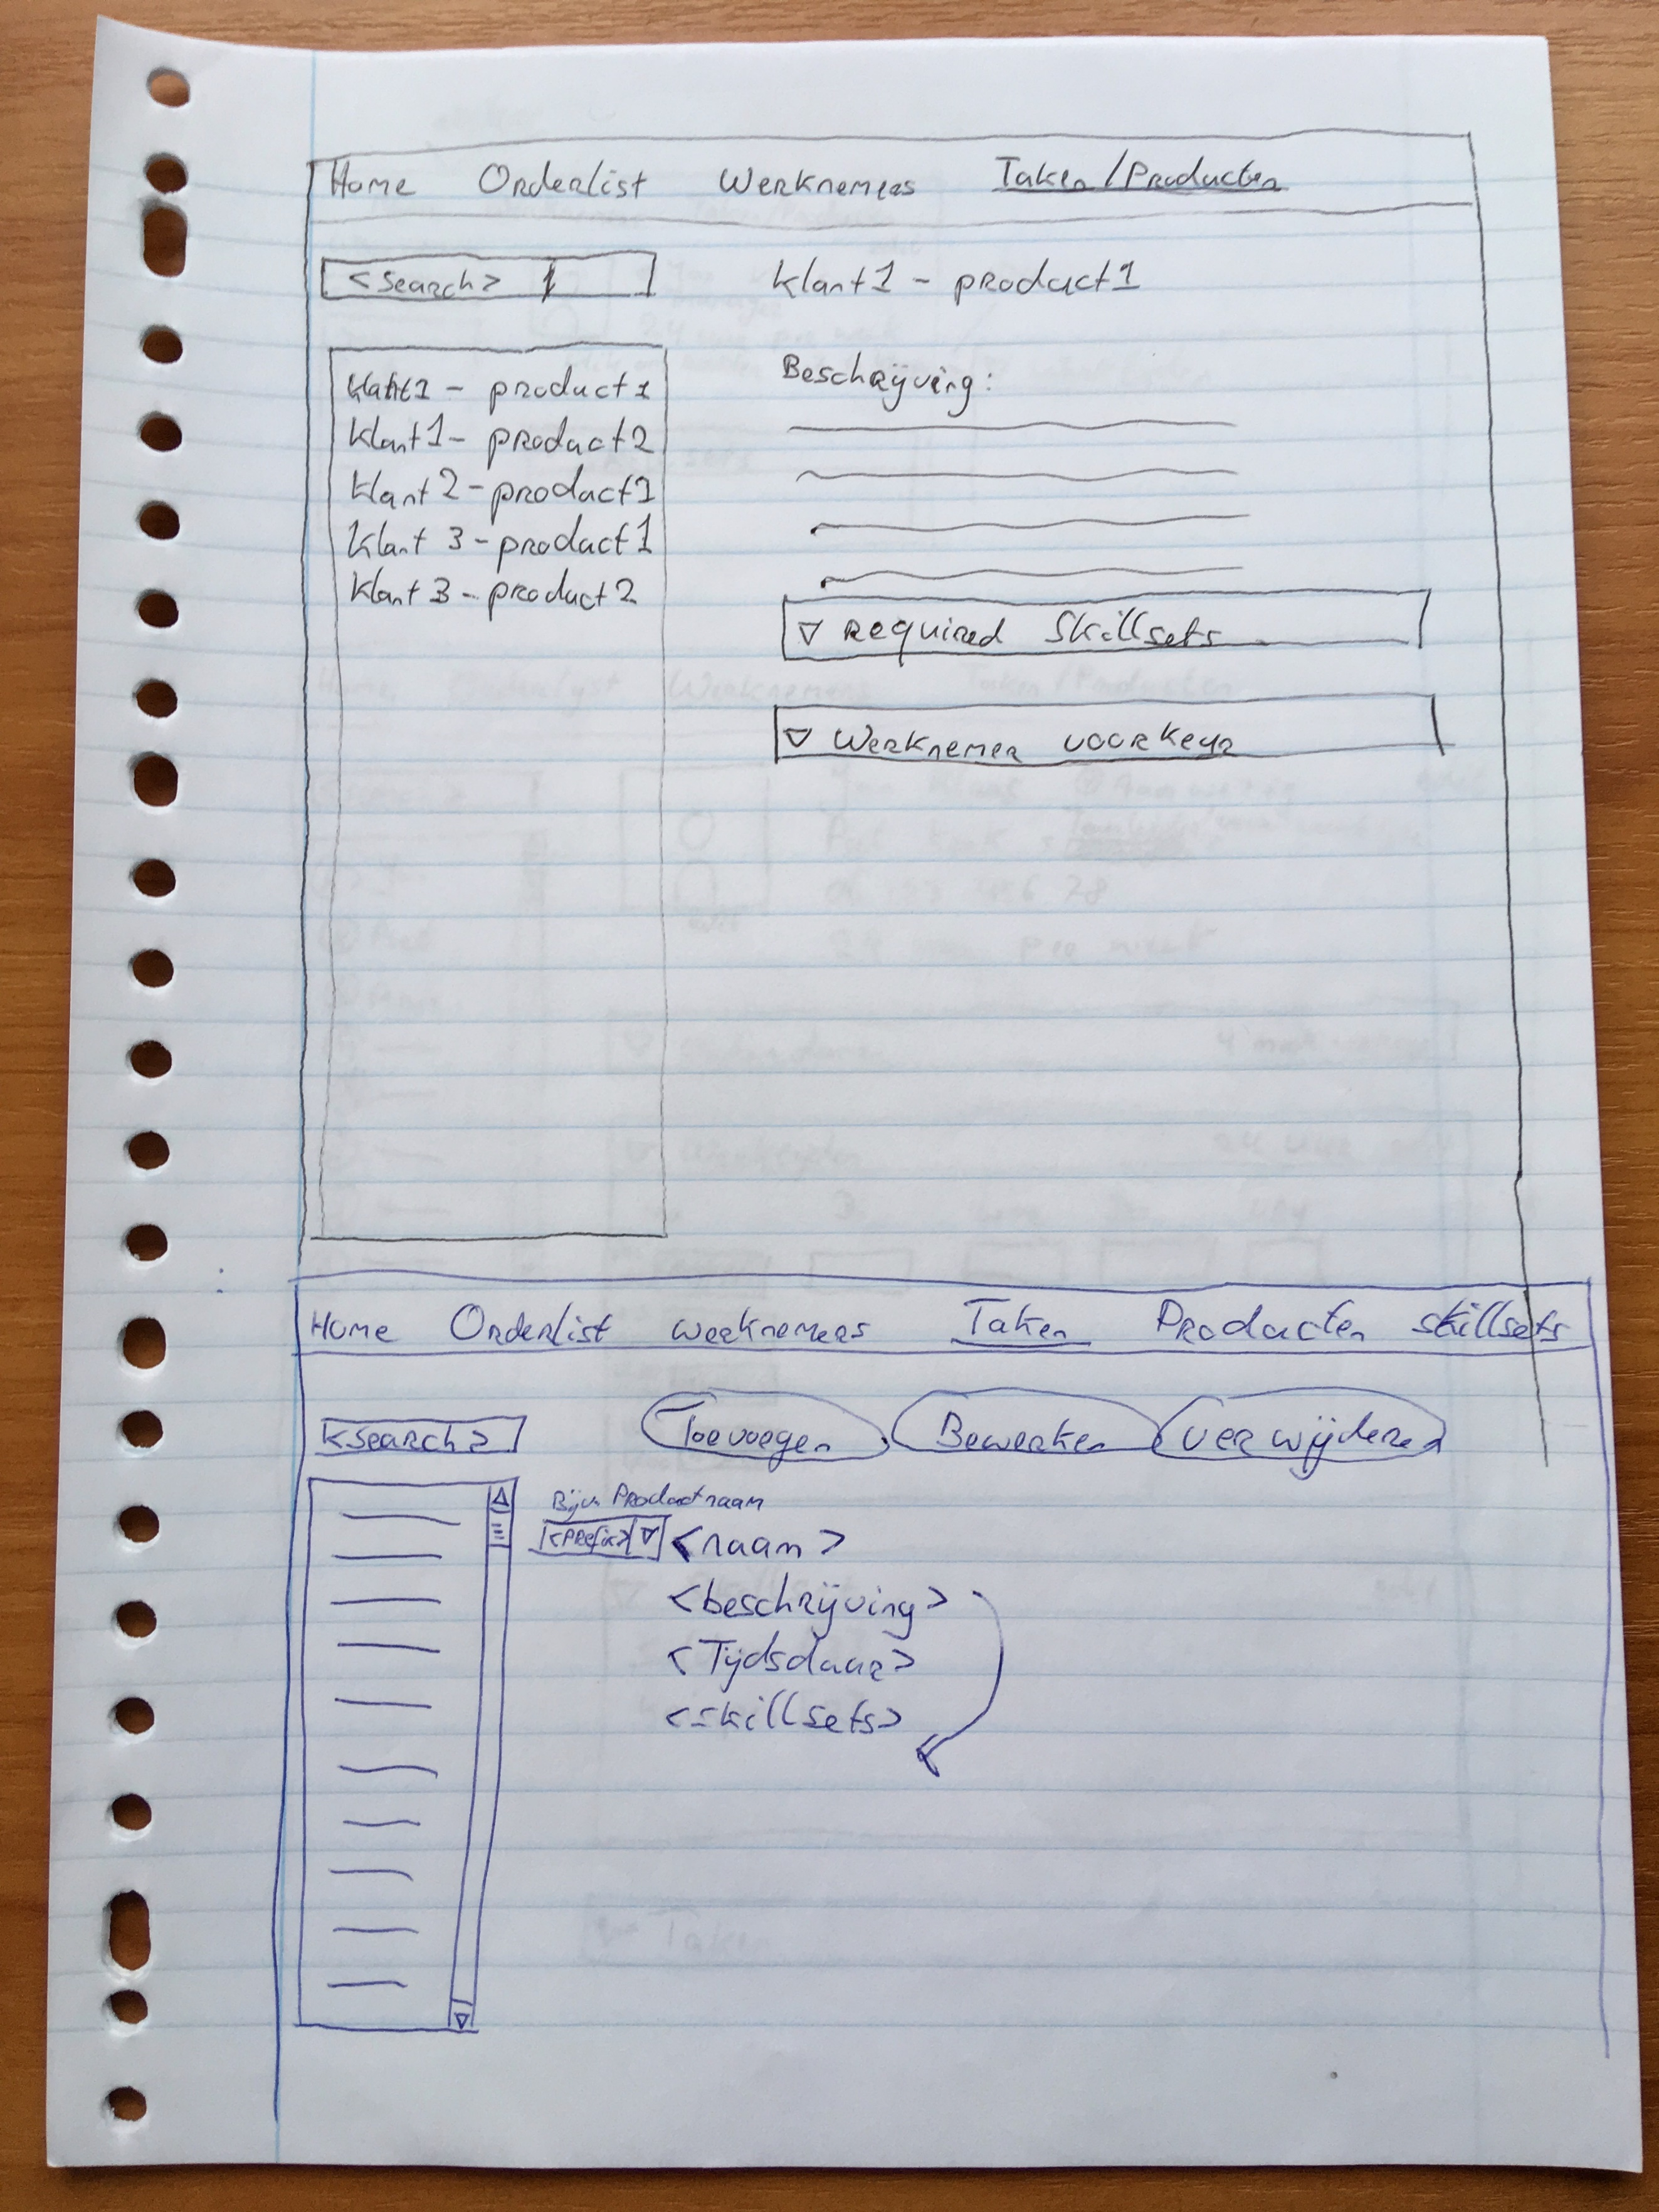 Home Orderlist Werknemers Taken/Producten
<Search>
klant1 - product1
klant1 - product1
klant1 - product2
klant 2 - product1
klant 3 - product1
klant 3 - product2
Beschrijving:
▽ required Skillsets
▽ Werknemer voorkeur
Home Orderlist werknemers Taken Producten skillsets
<search>
Toevoegen Bewerken verwijderen
Bijv. Productnaam
<Prefix> ▽ <naam>
<beschrijving>
<Tijdsduur>
<skillsets>